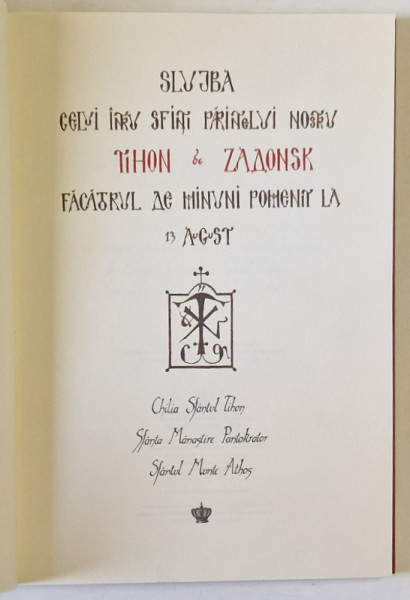 SLUJBA
CELUI ÎNTRU SFINȚI PĂRINTELUI NOSTRU
TIHON de ZADONSK
FĂCĂTORUL DE MINUNI POMENIT LA
13 AUGUST
Chilia Sfântul Tihon
Sfânta Mănăstire Pantokrator
Sfântul Munte Athos